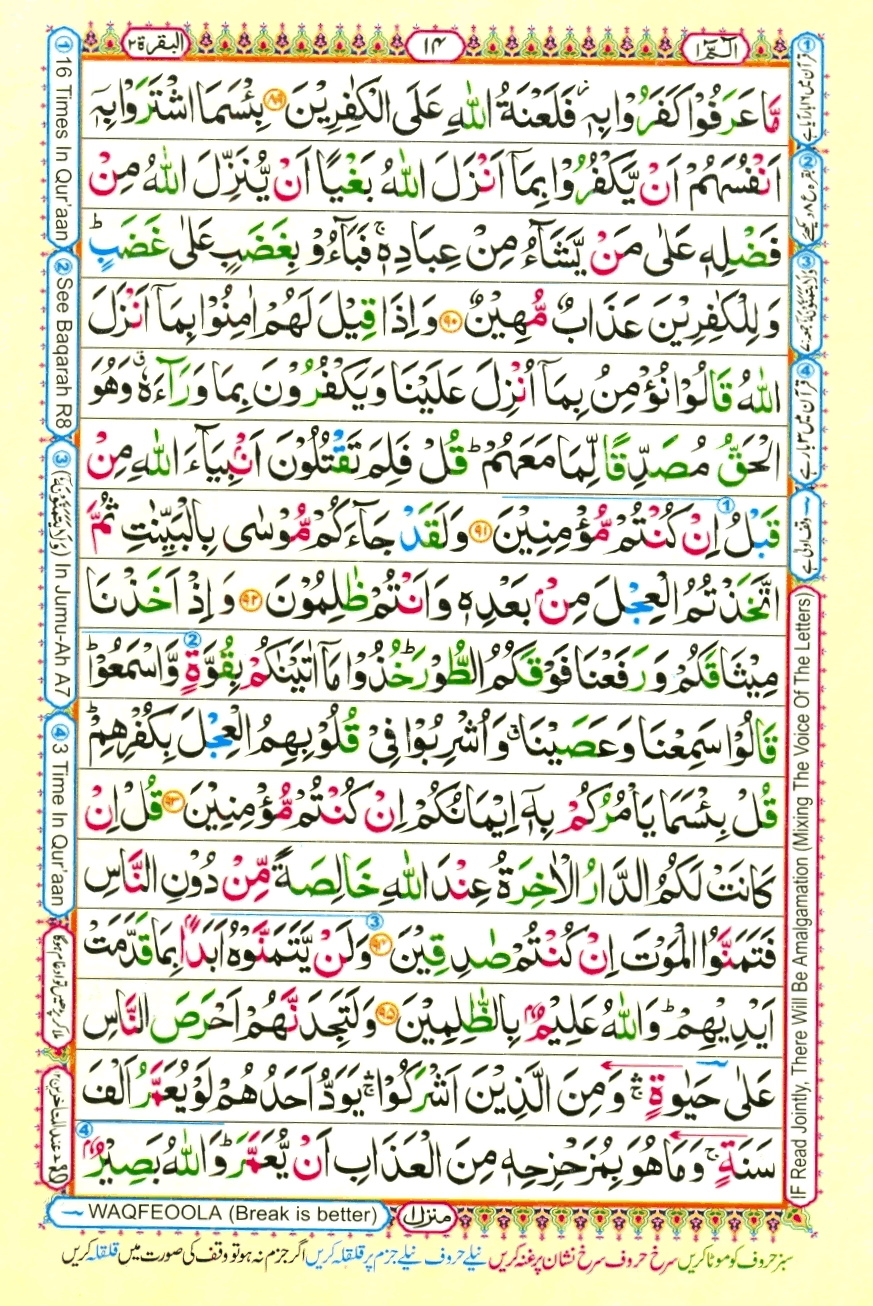 البقرة ٢
١٤
الٓمّٓ ١
مَّا عَرَفُوْا كَفَرُوْا بِهٖ٘ فَلَعْنَةُ اللّٰهِ عَلَى الْكٰفِرِيْنَ ۝٨٩ بِئْسَمَا اشْتَرَوْا بِهٖۤ
اَنْفُسَهُمْ اَنْ يَّكْفُرُوْا بِمَاۤ اَنْزَلَ اللّٰهُ بَغْيًا اَنْ يُّنَزِّلَ اللّٰهُ مِنْ
فَضْلِهٖ عَلٰى مَنْ يَّشَآءُ مِنْ عِبَادِهٖۚ فَبَآءُوْ بِغَضَبٍ عَلٰى غَضَبٍؕ
وَ لِلْكٰفِرِيْنَ عَذَابٌ مُّهِيْنٌ ۝٩٠ وَ اِذَا قِيْلَ لَهُمْ اٰمِنُوْا بِمَاۤ اَنْزَلَ
اللّٰهُ قَالُوْا نُؤْمِنُ بِمَاۤ اُنْزِلَ عَلَيْنَا وَ يَكْفُرُوْنَ بِمَا وَرَآءَهٗۗ وَ هُوَ
الْحَقُّ مُصَدِّقًا لِّمَا مَعَهُمْؕ قُلْ فَلِمَ تَقْتُلُوْنَ اَنْۢبِيَآءَ اللّٰهِ مِنْ
قَبْلُ اِنْ كُنْتُمْ مُّؤْمِنِيْنَ ۝٩١ وَ لَقَدْ جَآءَكُمْ مُّوْسٰى بِالْبَيِّنٰتِ ثُمَّ
اتَّخَذْتُمُ الْعِجْلَ مِنْۢ بَعْدِهٖ وَ اَنْتُمْ ظٰلِمُوْنَ ۝٩٢ وَ اِذْ اَخَذْنَا
مِيْثَاقَكُمْ وَ رَفَعْنَا فَوْقَكُمُ الطُّوْرَؕ خُذُوْا مَاۤ اٰتَيْنٰكُمْ بِقُوَّةٍ وَّ اسْمَعُوْاؕ
قَالُوْا سَمِعْنَا وَ عَصَيْنَاۗ وَ اُشْرِبُوْا فِيْ قُلُوْبِهِمُ الْعِجْلَ بِكُفْرِهِمْؕ
قُلْ بِئْسَمَا يَاْمُرُكُمْ بِهٖۤ اِيْمَانُكُمْ اِنْ كُنْتُمْ مُّؤْمِنِيْنَ ۝٩٣ قُلْ اِنْ
كَانَتْ لَكُمُ الدَّارُ الْاٰخِرَةُ عِنْدَ اللّٰهِ خَالِصَةً مِّنْ دُوْنِ النَّاسِ
فَتَمَنَّوُا الْمَوْتَ اِنْ كُنْتُمْ صٰدِقِيْنَ ۝٩٤ وَ لَنْ يَّتَمَنَّوْهُ اَبَدًۢا بِمَا قَدَّمَتْ
اَيْدِيْهِمْؕ وَ اللّٰهُ عَلِيْمٌۢ بِالظّٰلِمِيْنَ ۝٩٥ وَ لَتَجِدَنَّهُمْ اَحْرَصَ النَّاسِ
عَلٰى حَيٰوةٍۛۚ وَ مِنَ الَّذِيْنَ اَشْرَكُوْاۛۚ يَوَدُّ اَحَدُهُمْ لَوْ يُعَمَّرُ اَلْفَ
سَنَةٍۚ وَ مَا هُوَ بِمُزَحْزِحِهٖ مِنَ الْعَذَابِ اَنْ يُّعَمَّرَؕ وَ اللّٰهُ بَصِيْرٌۢ
① 16 Times In Qur'aan
② See Baqarah R8
③ (وَلَا يَتَمَنَّوْنَهٗ) In Jumu-Ah A7
④ 3 Time In Qur'aan
IF Read Jointly, There Will Be Amalgamation (Mixing The Voice Of The Letters)
WAQFEOOLA (Break is better)
منزل ١
سبز حروف کو موٹا کریں سرخ حروف سرخ نشان پر غنہ کریں نیلے حروف نیلے جزم پر قلقلہ کریں اگر جزم نہ ہو تو وقف کی صورت میں قلقلہ کریں